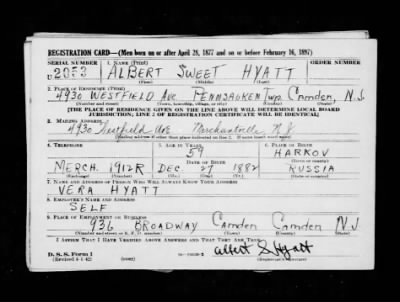 REGISTRATION CARD—(Men born on or after April 28, 1877 and on or before February 16, 1897)
SERIAL NUMBER 1. NAME (Print) ORDER NUMBER
U 2053 ALBERT SWEET HYATT
(First) (Middle) (Last)
2. PLACE OF RESIDENCE (Print)
4930 WESTFIELD AVE PENNSAUKEN Twp. Camden, N.J.
(Number and street) (Town, township, village, or city) (County) (State)
[THE PLACE OF RESIDENCE GIVEN ON THE LINE ABOVE WILL DETERMINE LOCAL BOARD
JURISDICTION; LINE 2 OF REGISTRATION CERTIFICATE WILL BE IDENTICAL]
3. MAILING ADDRESS
4930 Westfield Ave Merchantville N.J.
[Mailing address if other than place indicated on line 2. If same insert word same]
4. TELEPHONE 5. AGE IN YEARS 6. PLACE OF BIRTH
59 HARKOV
DATE OF BIRTH (Town or county)
MERCH. 1912R DEC 27 1882 RUSSIA
(Exchange) (Number) (Mo.) (Day) (Yr.) (State or country)
7. NAME AND ADDRESS OF PERSON WHO WILL ALWAYS KNOW YOUR ADDRESS
VERA HYATT
8. EMPLOYER'S NAME AND ADDRESS
SELF
9. PLACE OF EMPLOYMENT OR BUSINESS
936 BROADWAY Camden Camden N.J.
(Number and street or R. F. D. number) (Town) (County) (State)
I AFFIRM THAT I HAVE VERIFIED ABOVE ANSWERS AND THAT THEY ARE TRUE.
D. S. S. Form 1
(Revised 4-1-42) (over)
Albert S. Hyatt